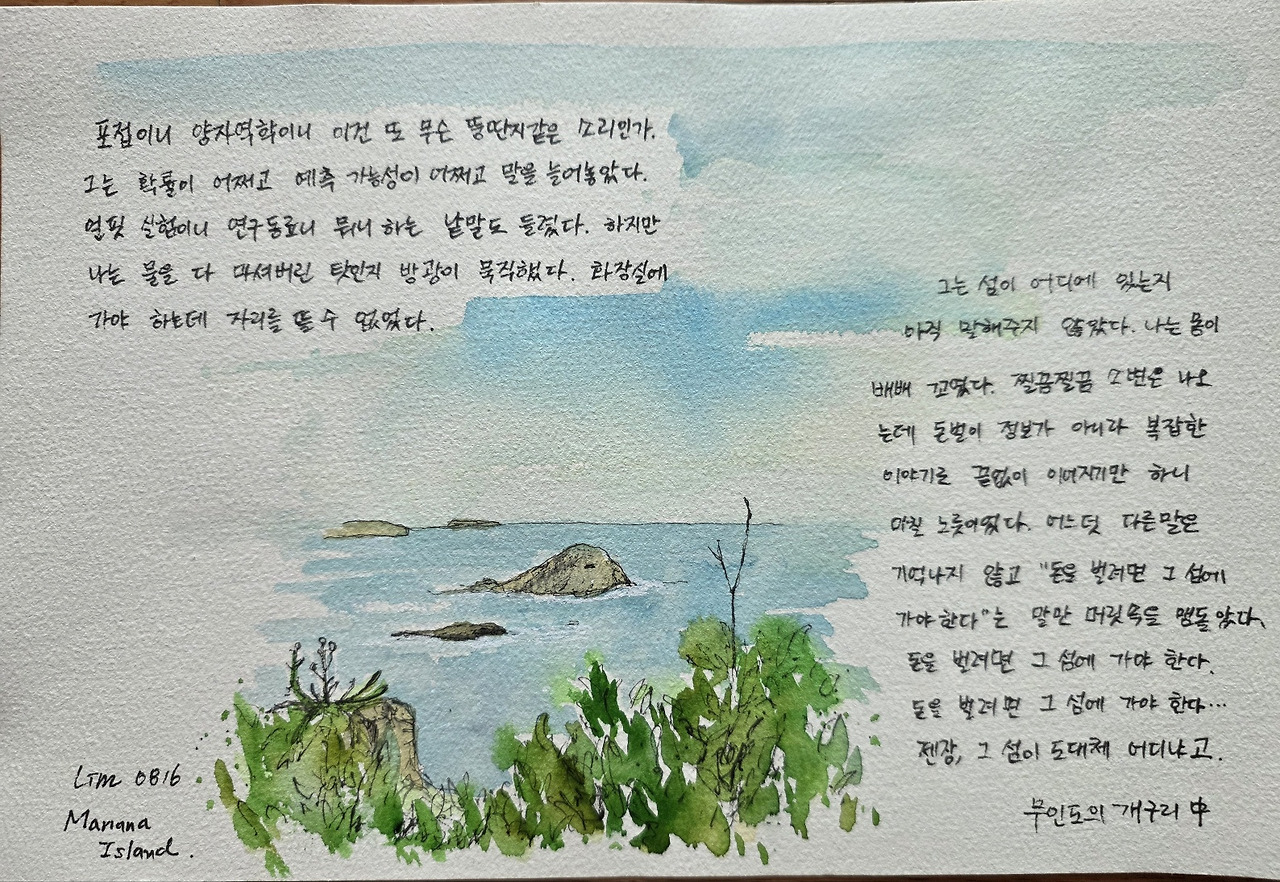 포접이니 양자역학이니 이건 또 무슨 뚱딴지같은 소리인가.
그는 확률이 어쩌고 예측 가능성이 어쩌고 말을 늘어놓았다.
얼핏 실험이니 연구동료니 뭐니 하는 낱말도 들렸다. 하지만
나는 물을 다 마셔버린 탓인지 방광이 묵직했다. 화장실에
가야 하는데 자리를 뜰 수 없었다.
그는 섬이 어디에 있는지
아직 말해주지 않았다. 나는 몸이
배배 꼬였다. 찔끔찔끔 소변은 나오
는데 돈벌이 정보가 아니라 복잡한
이야기로 끝없이 이어지기만 하니
미칠 노릇이었다. 어느덧 다른말은
기억나지 않고 "돈을 벌려면 그 섬에
가야한다"는 말만 머릿속을 맴돌았다.
돈을 벌려면 그 섬에 가야 한다.
돈을 벌려면 그 섬에 가야 한다...
젠장, 그 섬이 도대체 어디냐고.
무인도의 개구리 中
LTM 0816
Mariana
Island.